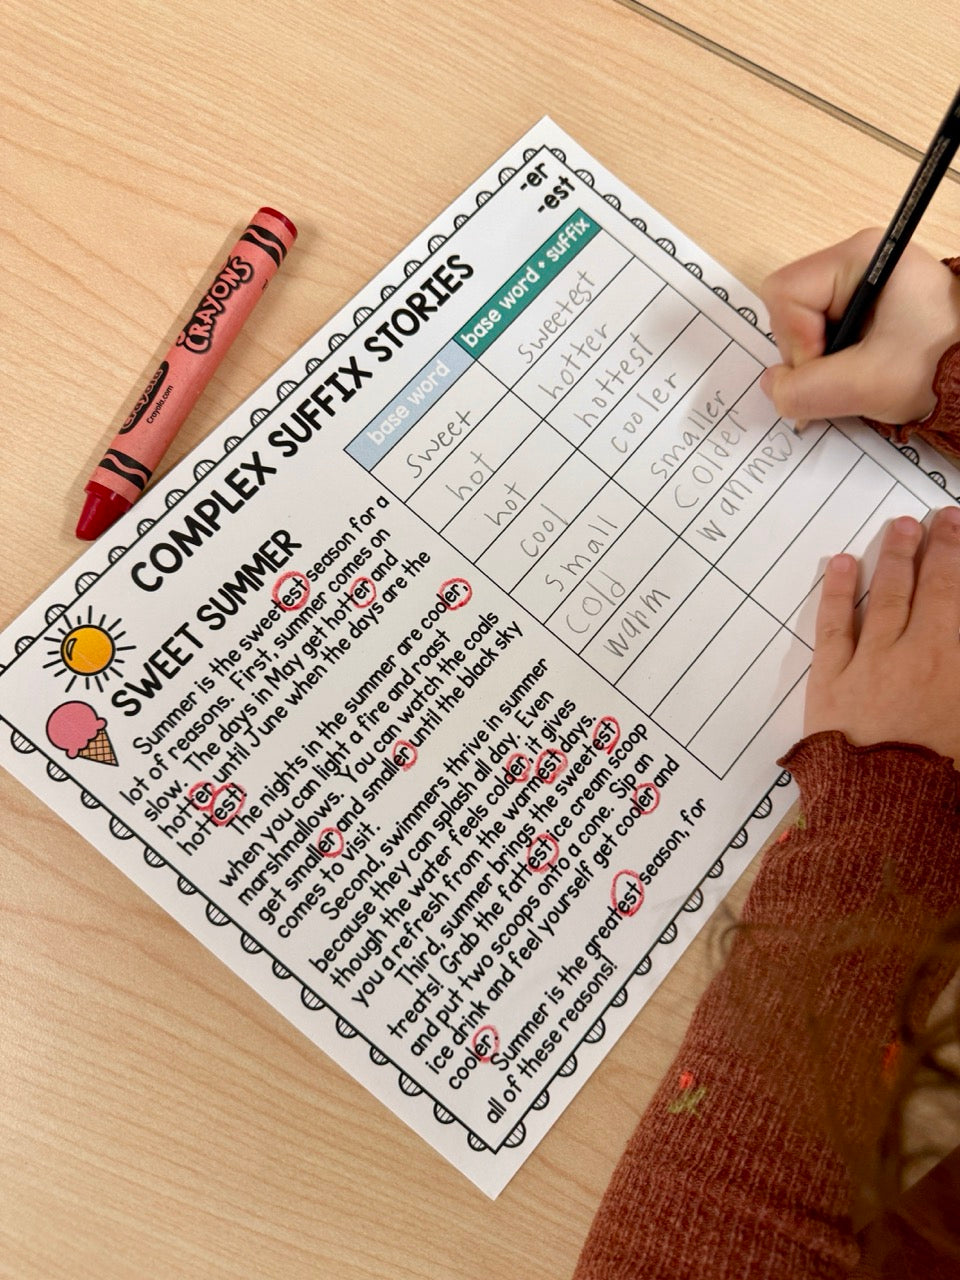 -er
-est
COMPLEX SUFFIX STORIES
SWEET SUMMER
Summer is the sweetest season for a
lot of reasons. First, summer comes on
slow. The days in May get hotter and
hotter until June when the days are the
hottest!
The nights in the summer are cooler,
when you can light a fire and roast
marshmallows. You can watch the coals
get smaller and smaller until the black sky
comes to visit.
Second, swimmers thrive in summer
because they can splash all day. Even
though the water feels colder, it gives
you a refresh from the warmest days.
Third, summer brings the sweetest
treats! Grab the fattest ice cream scoop
and put two scoops onto a cone. Sip an
ice drink and feel yourself get cooler and
cooler.
Summer is the greatest season, for
all of these reasons!
base word base word + suffix
sweet sweetest
hot hotter
hot hottest
cool cooler
small smaller
cold colder
wahm wanmes
CRAYONS
Crayola
Crayola.com